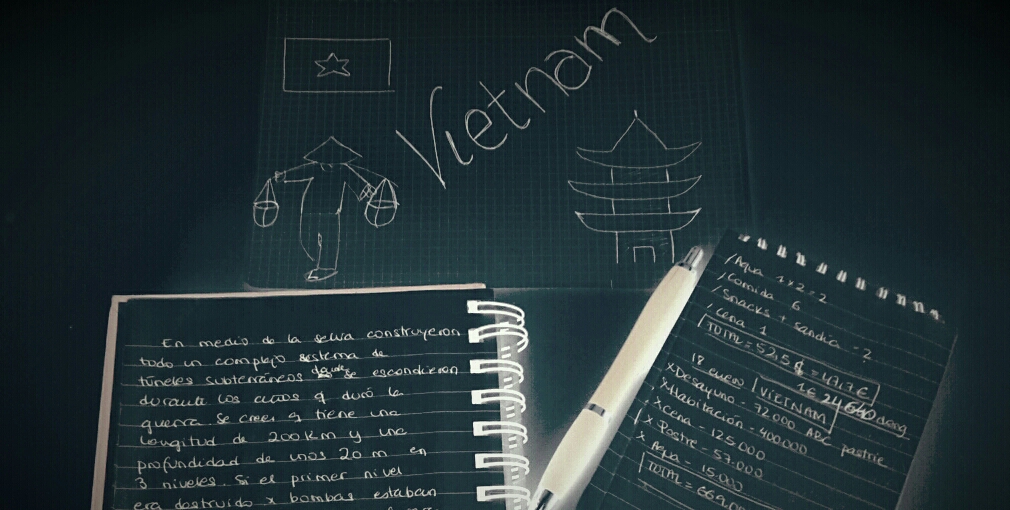 Vietnam
En medio de la selva construyeron
todo un complejo sistema de
túneles subterráneos donde se escondieron
durante los años q duró la
guerra. Se cree q tiene una
longitud de 200 km y una
profundidad de unos 20 m en
3 niveles. Si el primer nivel
era destruido x bombas estaban
/Agua 1x2=2
/Comida 6
/Snacks + sandía -2
/Cena 1
TOTAL = 52,5 $ = 47,17 €
1€ 24.640 dong
18 enero VIETNAM
xDesayuno - 72000 ABC pastrie
xHabitación - 400.000
xCena - 125.000
x Postre - 57.000
x Agua - 15.000
TOTAL = 669.0